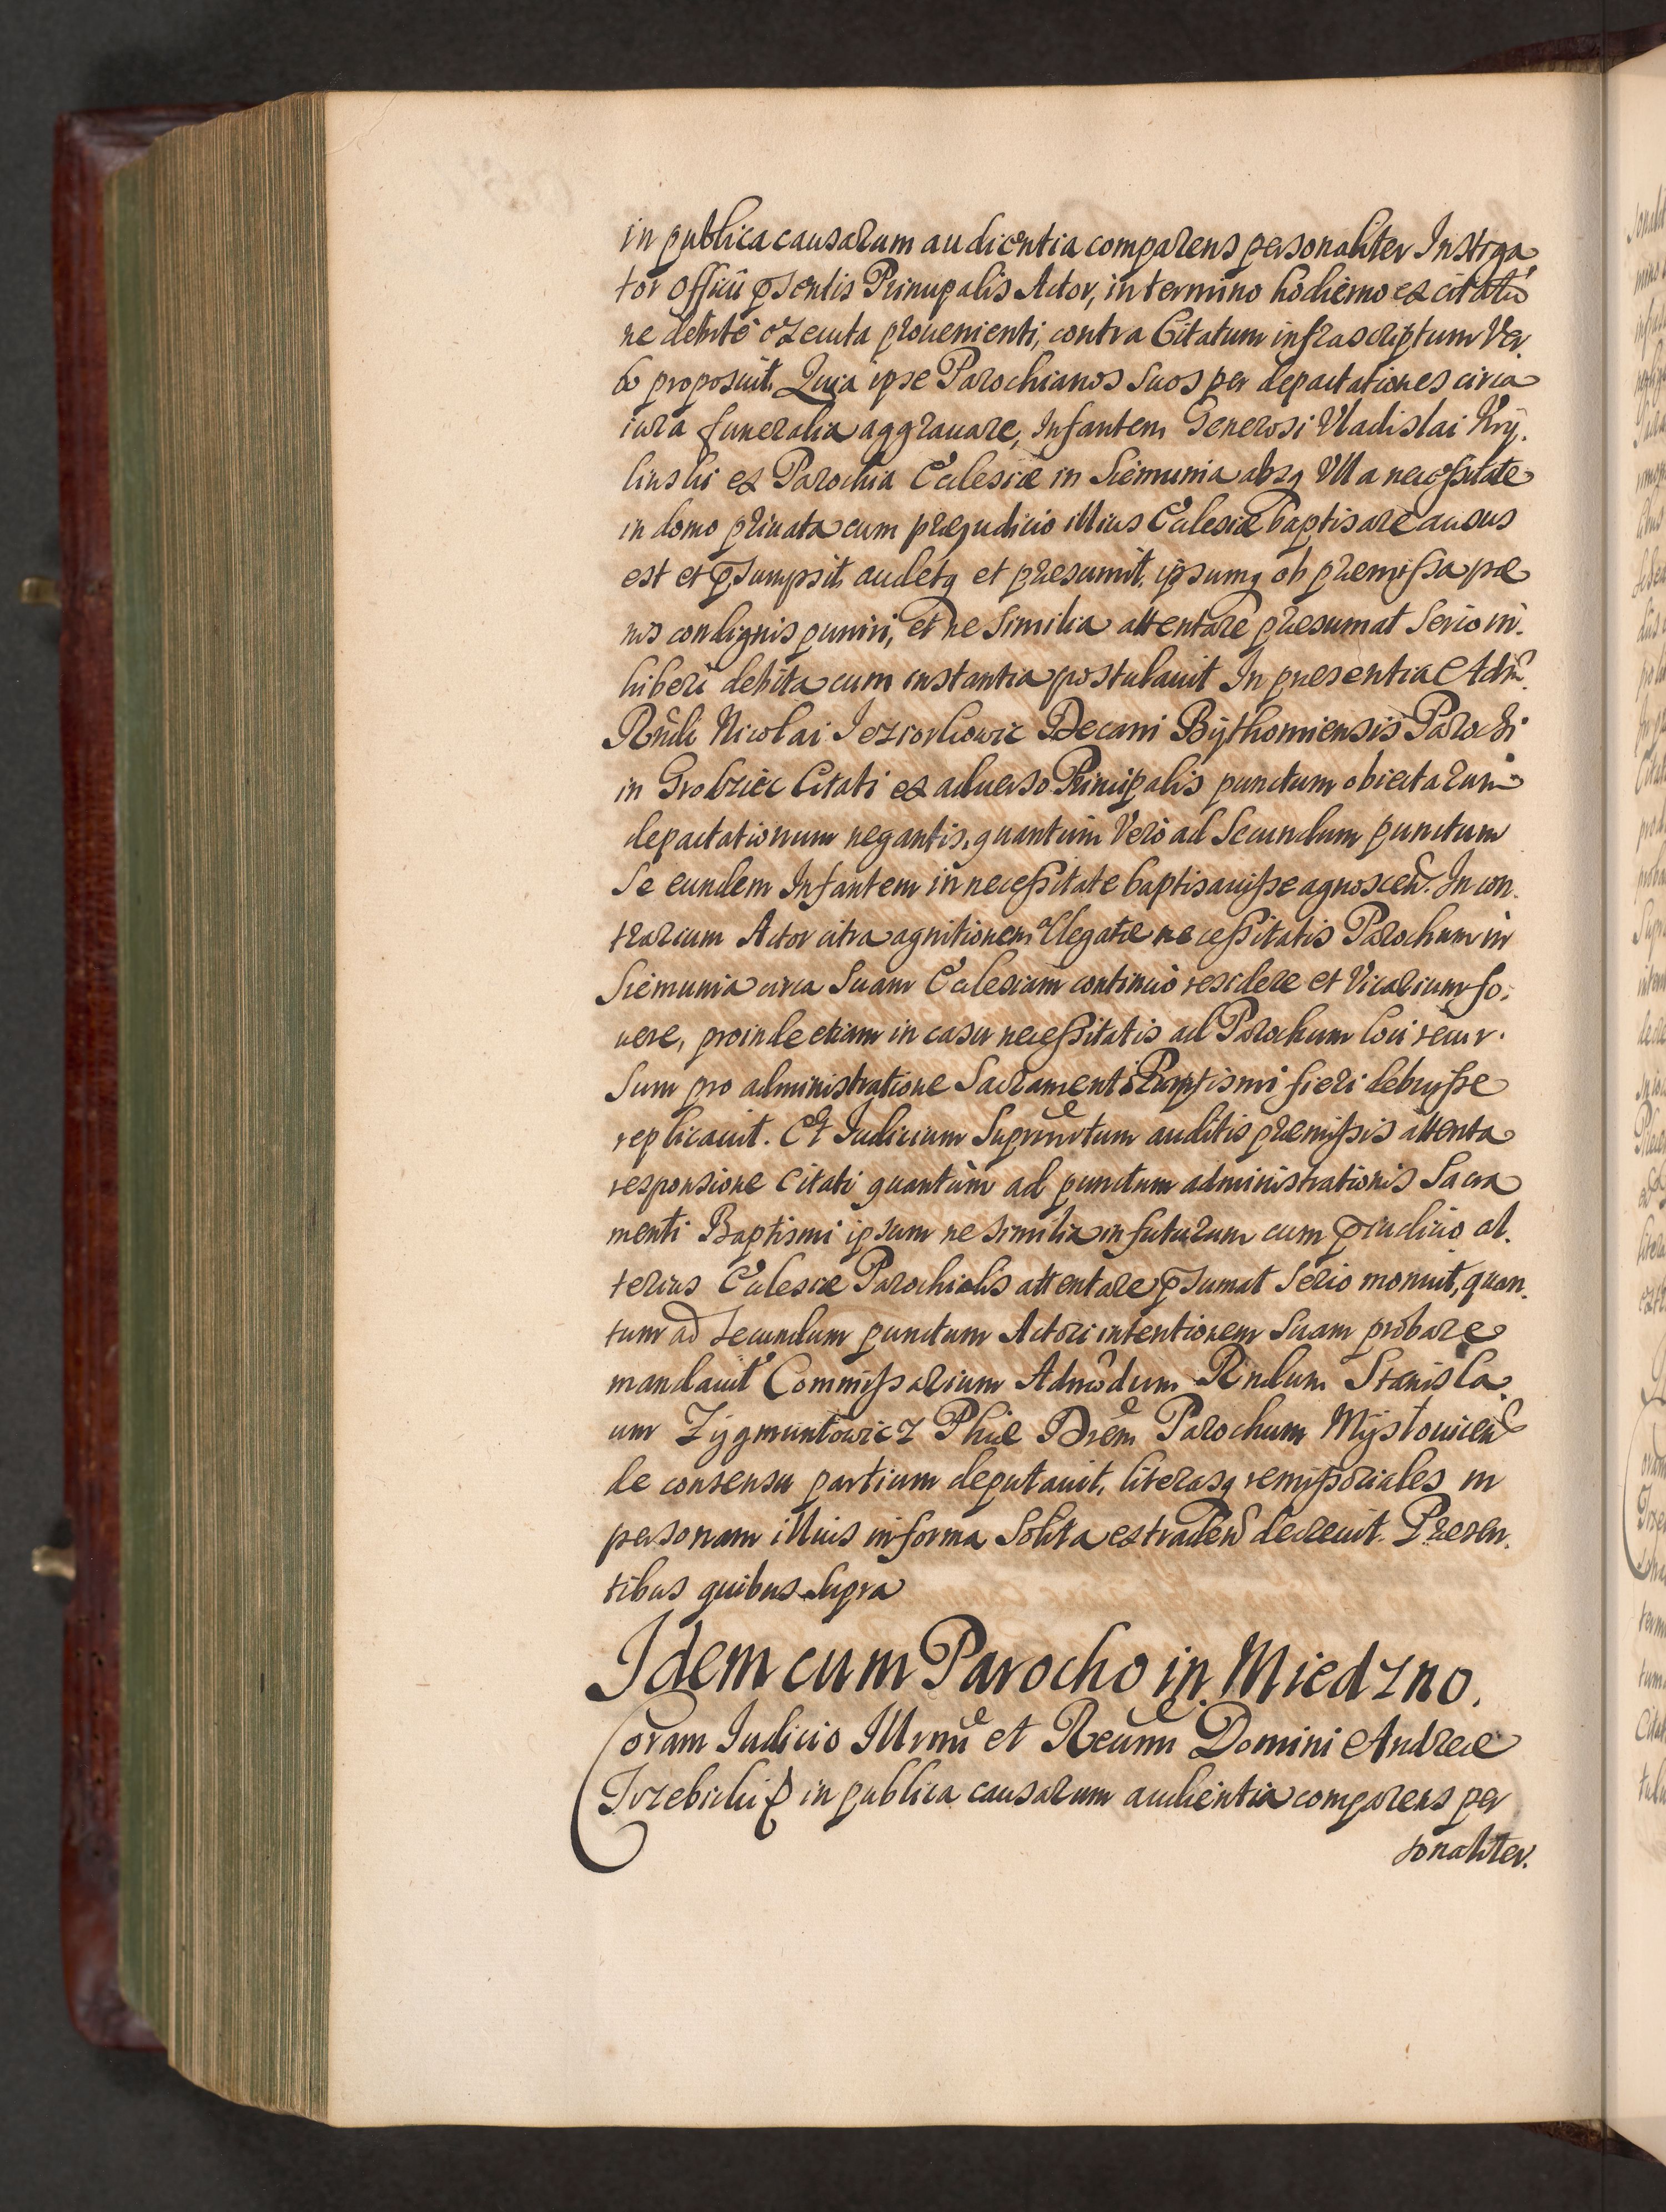 in publica causarum audientia comparens personaliter Instiga
tor Officii pſentis Principalis Actor, in termino hodierno ex citatio
ne debite exeuta prouenienti, contra Citatum infrascriptum Ver
bo proposuit. Quia ipse Parochianos suos per depactationes circa
iura funeralia aggrauare, Infantem Generosi Vladislai
ex Parochia Ecclesiæ in Siemunia absq Vlla necessitate
in domo priuata cum præjudicio illius Ecclesiæ baptisare ausus
est et pſumpsit, audetq et præsumit, ipsumq ob præmissa pæ
nis condignis puniri, et ne similia attentare præsumat serio in-
hiberi debita cum instantia postulauit In præsentia Adm
Rndi Nicolai Jeziorkowic Decani Bÿthomiensis Parochi
in Grodziec Citati ex aduerso Principalis punctum obiectarum
depactationum negantis, quantum Vero ad Secundum punctum
se eundem Infantem in necessitate baptisauisse agnoscen. In con-
trarium Actor citra agnitionem allegatæ necessitatis Parochum in
Siemunia circa suam Ecclesiam continuò residere et Vicarium fo-
uere, proinde etiam in casu necessitatis ad Parochum loci recur-
sum pro administratione Sacramenti Baptismi fieri debuisse
replicauit. Et Iudicium auditis præmissis attenta
responsione Citati quantùm ad punctum administrationis Sacra
menti Baptismi ipsum ne similia in futurum cum pſiudicio al-
terius Ecclesiæ Parochialis attentare pſumat serio monuit, quan-
tum ad secundum punctum Actori intentionem suam probare
mandauit Commissarium Admodum Rndum Stanisla
um Zÿgmuntowicz Phiæ Drem Parochum Mÿslouicen
de consensu partium deputauit, literasq remissoriales in
personam illius in forma solita extraden decreuit. Præsen-
tibus quibus supra
Idem cum Parocho in Miedzno.
Coram Iudicio Illrmi et Reumi Domini Andreæ
Trzebicki in publica causarum audientia comparens per
sonaliter.